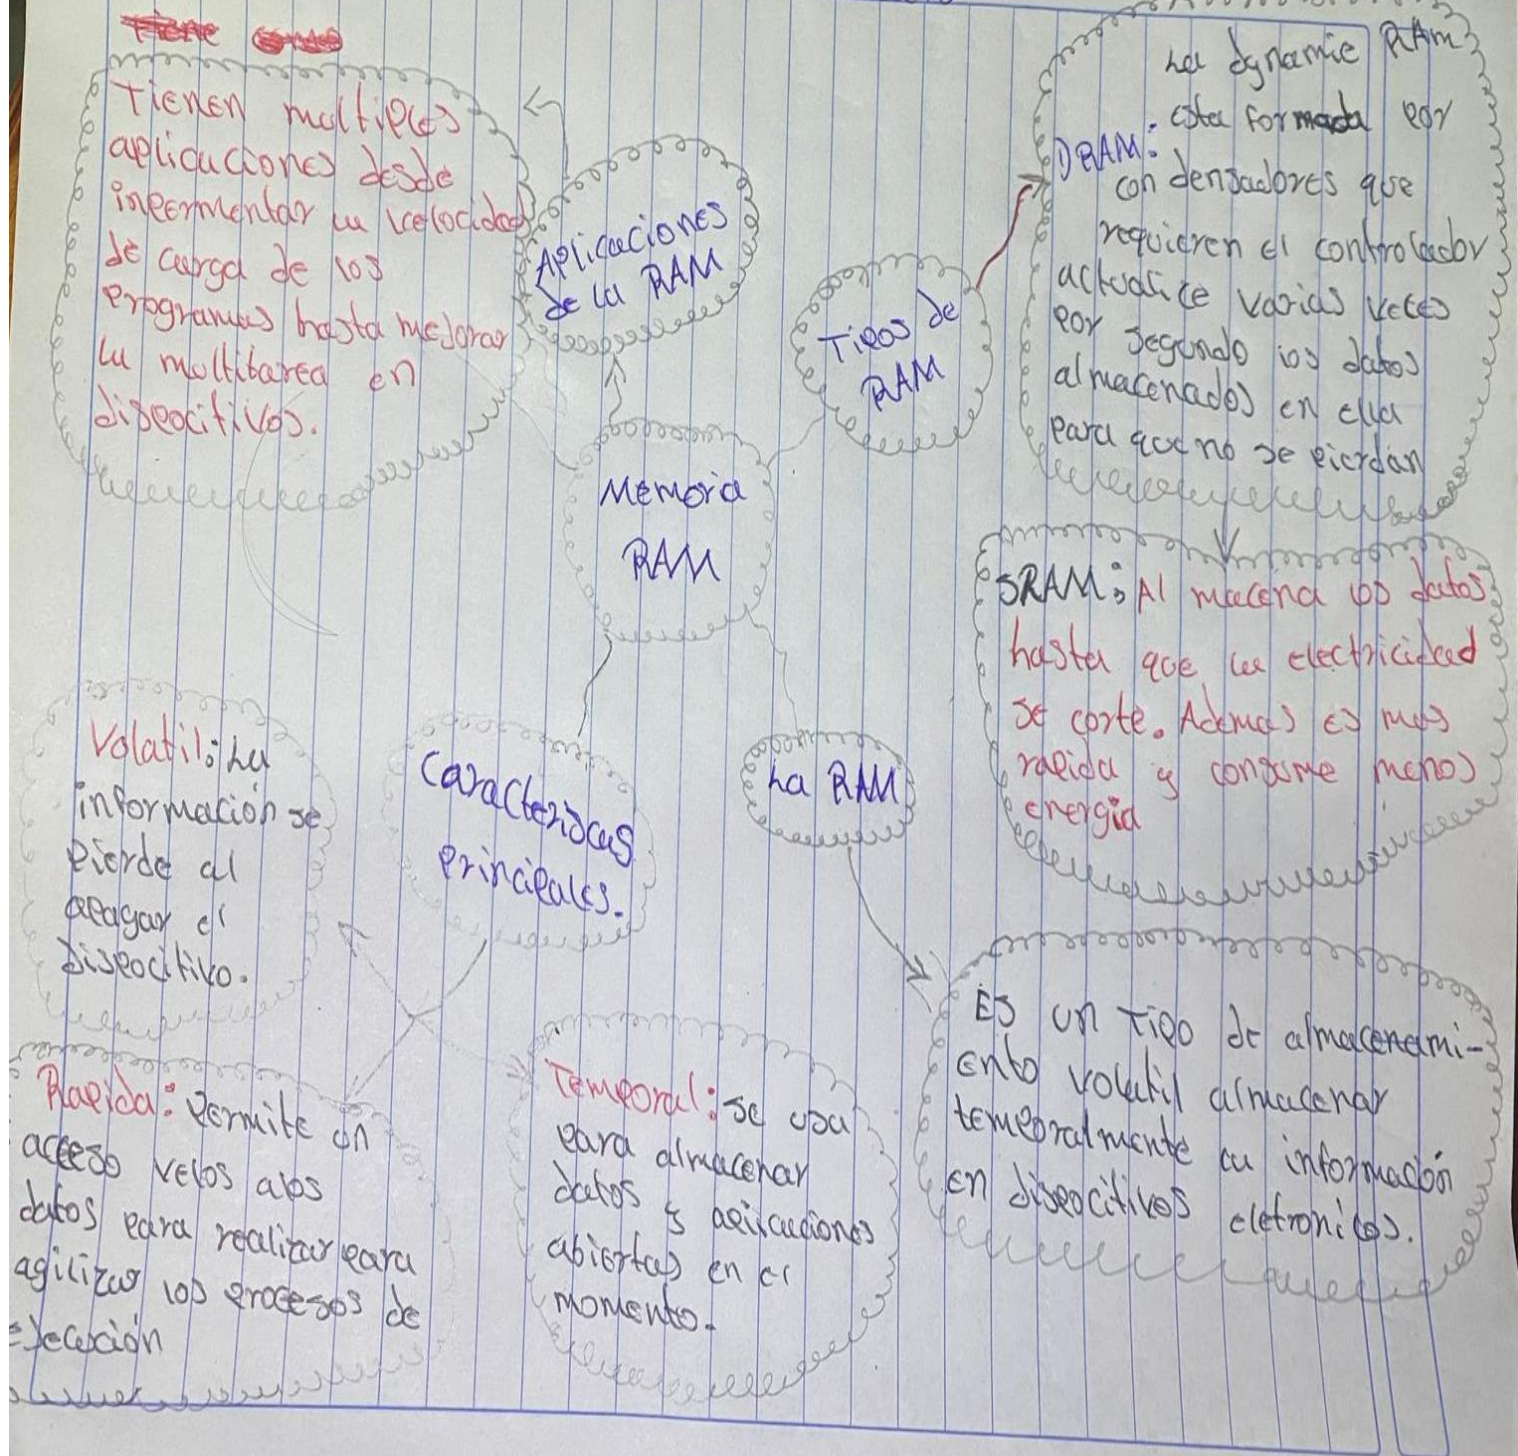 Tienen multiples
aplicaciones desde
incermentar la velocidad
de carga de los
programas hasta mejorar
la multitarea en
dispocitivos.
Aplicaciones
de la RAM
Tipos de
RAM
La dynamic RAM
DRAM: esta formada por
condensadores que
requieren el controlador
actualice varias veces
por segundo los datos
almacenados en ella
para que no se pierdan
Memoria
RAM
SRAM: Almacena los datos
hasta que la electricidad
se corte. Ademas es mas
rapida y consume menos
energia
Volatil: La
información se
pierde al
apagar el
dispocitivo.
Caracteriscas
principales.
La RAM
Es un tipo de almacenami-
ento volatil almacenar
temporalmente la información
en dispocitivos eletronicos.
Rapida: Permite un
acceso velos a los
datos para realizar para
agilizar los procesos de
ejecución
Temporal: se usa
para almacenar
datos y aplicaciones
abiertas en el
momento.